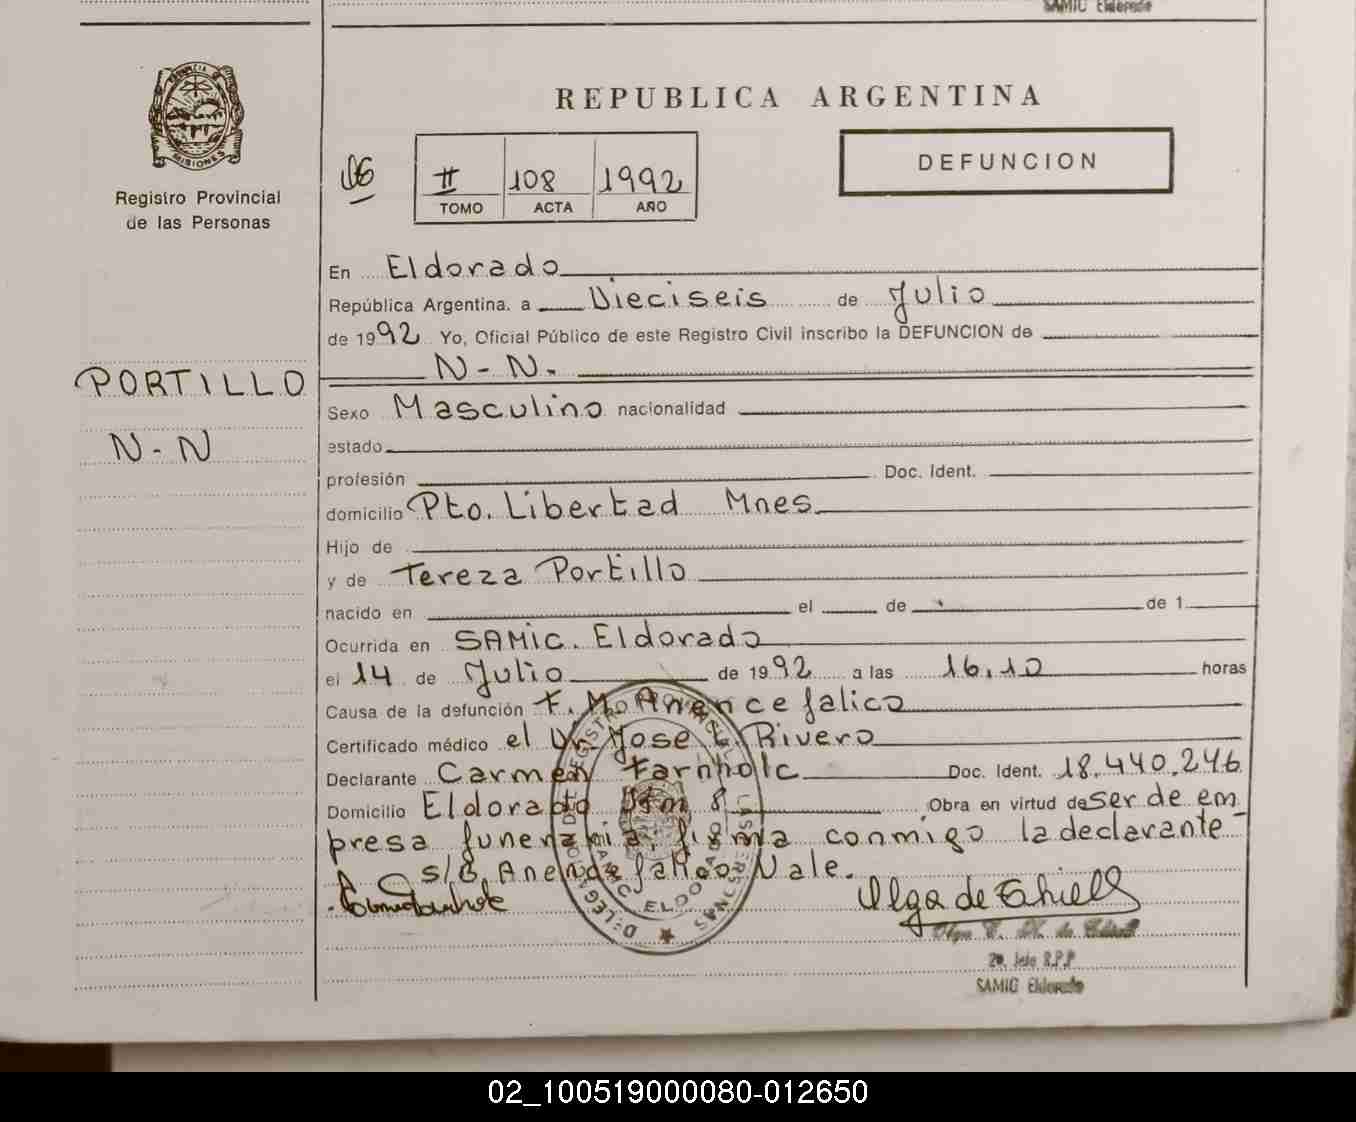 SAMIC Eldorado
PROVINCIA DE
MISIONES
Registro Provincial
de las Personas
REPUBLICA ARGENTINA
DEFUNCION
II 108 1992
TOMO ACTA AÑO
En Eldorado
República Argentina. a Dieciseis de Julio
de 1992 Yo, Oficial Público de este Registro Civil inscribo la DEFUNCION de
N-N.
PORTILLO
N-N
Sexo Masculino nacionalidad
estado
profesión Doc. Ident.
domicilio Pto. Libertad Mnes
Hijo de
y de Tereza Portillo
nacido en el de de 1
Ocurrida en SAMic. Eldorado
el 14 de Julio de 1992 a las 16,10 horas
Causa de la defunción F. M. Anencefalico
Certificado médico el Dr. Jose L. Rivero
Declarante Carmen Farnholc Doc. Ident. 18.440.246
Domicilio Eldorado Km 8 Obra en virtud de ser de em
presa funeraria, firma conmigo la declarante-
s/B. Anencefalico. Vale.
Olga de
2º Jefe R.P.P
SAMIC Eldorado
02_100519000080-012650